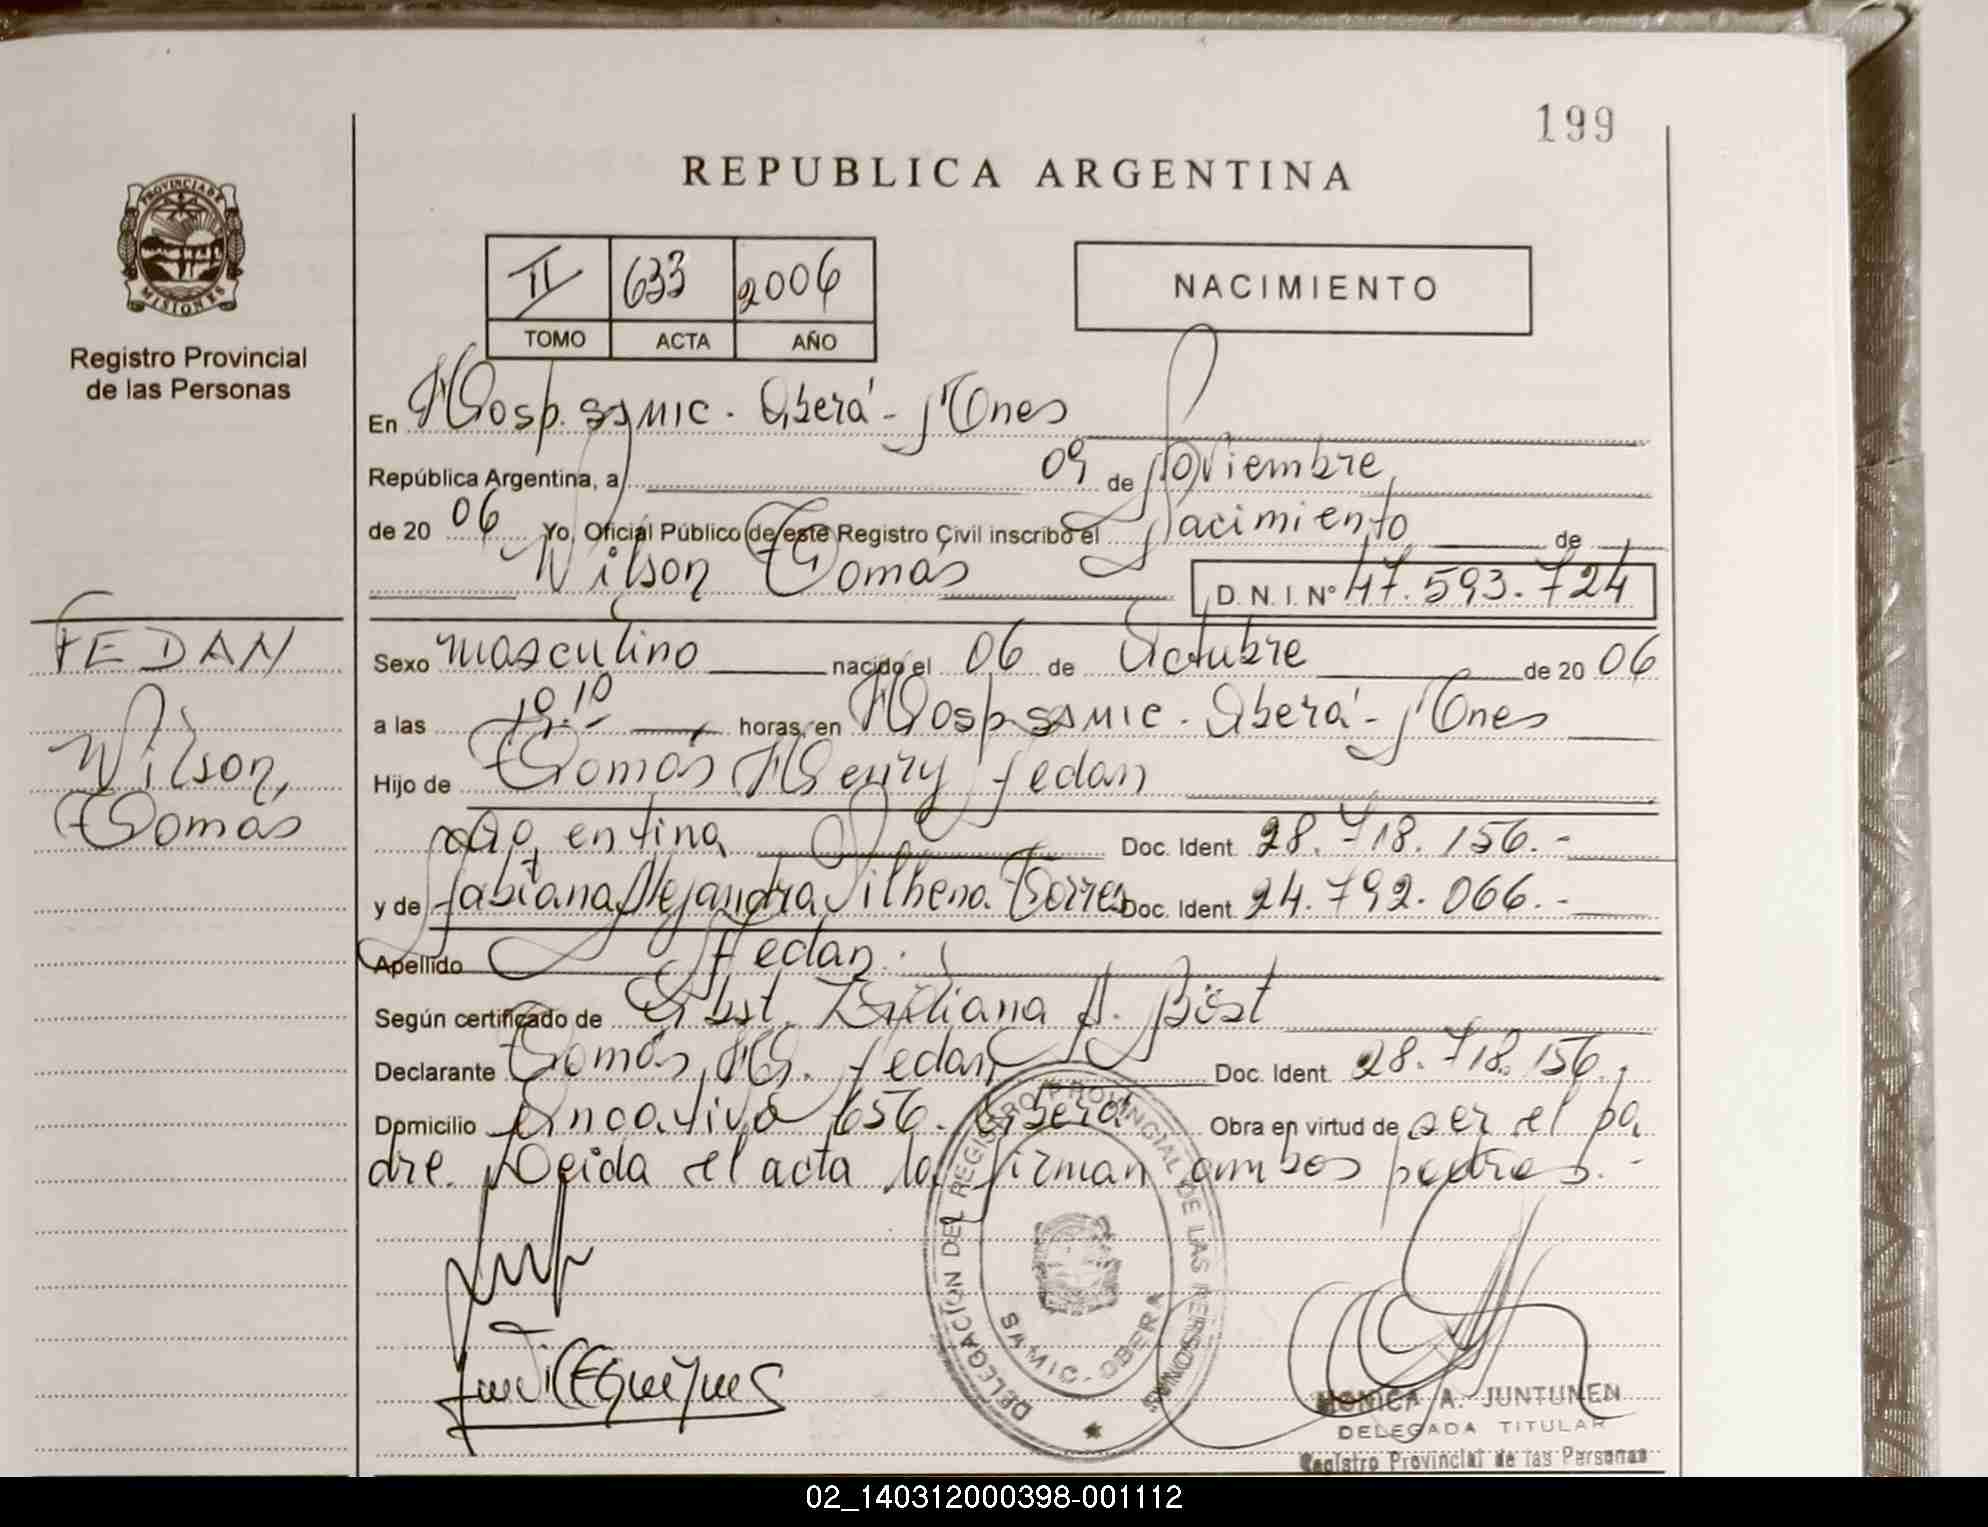 199
REPUBLICA ARGENTINA
PROVINCIA DE
MISIONES
Registro Provincial
de las Personas
II 633 2006
TOMO ACTA AÑO
NACIMIENTO
En Hosp. SAMIC. Oberá - Mnes
República Argentina, a 09 de Noviembre
de 20 06 Yo, Oficial Público de este Registro Civil inscribo el Nacimiento de
Wilson Tomás D. N. I. Nº 47.593.724
FEDAN
Wilson
Tomás
Sexo masculino nacido el 06 de Octubre de 20 06
a las 19.10 horas, en Hosp SAMIC. Oberá - Mnes
Hijo de Tomás Henry Fedan
Argentina Doc. Ident. 28.718.156.-
y de Fabiana Alejandra Silheno Torres Doc. Ident. 24.792.066.-
Apellido Fedan.
Según certificado de Obst. Lidiana A. Böst
Declarante Tomás H. Fedan Doc. Ident. 28.718.156.
Domicilio 656. Oberá Obra en virtud de ser el pa
dre. Leida el acta la firman ambos padres.-
DELEGACION DEL REGISTRO PROVINCIAL DE LAS PERSONAS
SAMIC - OBERA
MONICA A. JUNTUNEN
DELEGADA TITULAR
Registro Provincial de las Personas
02_140312000398-001112